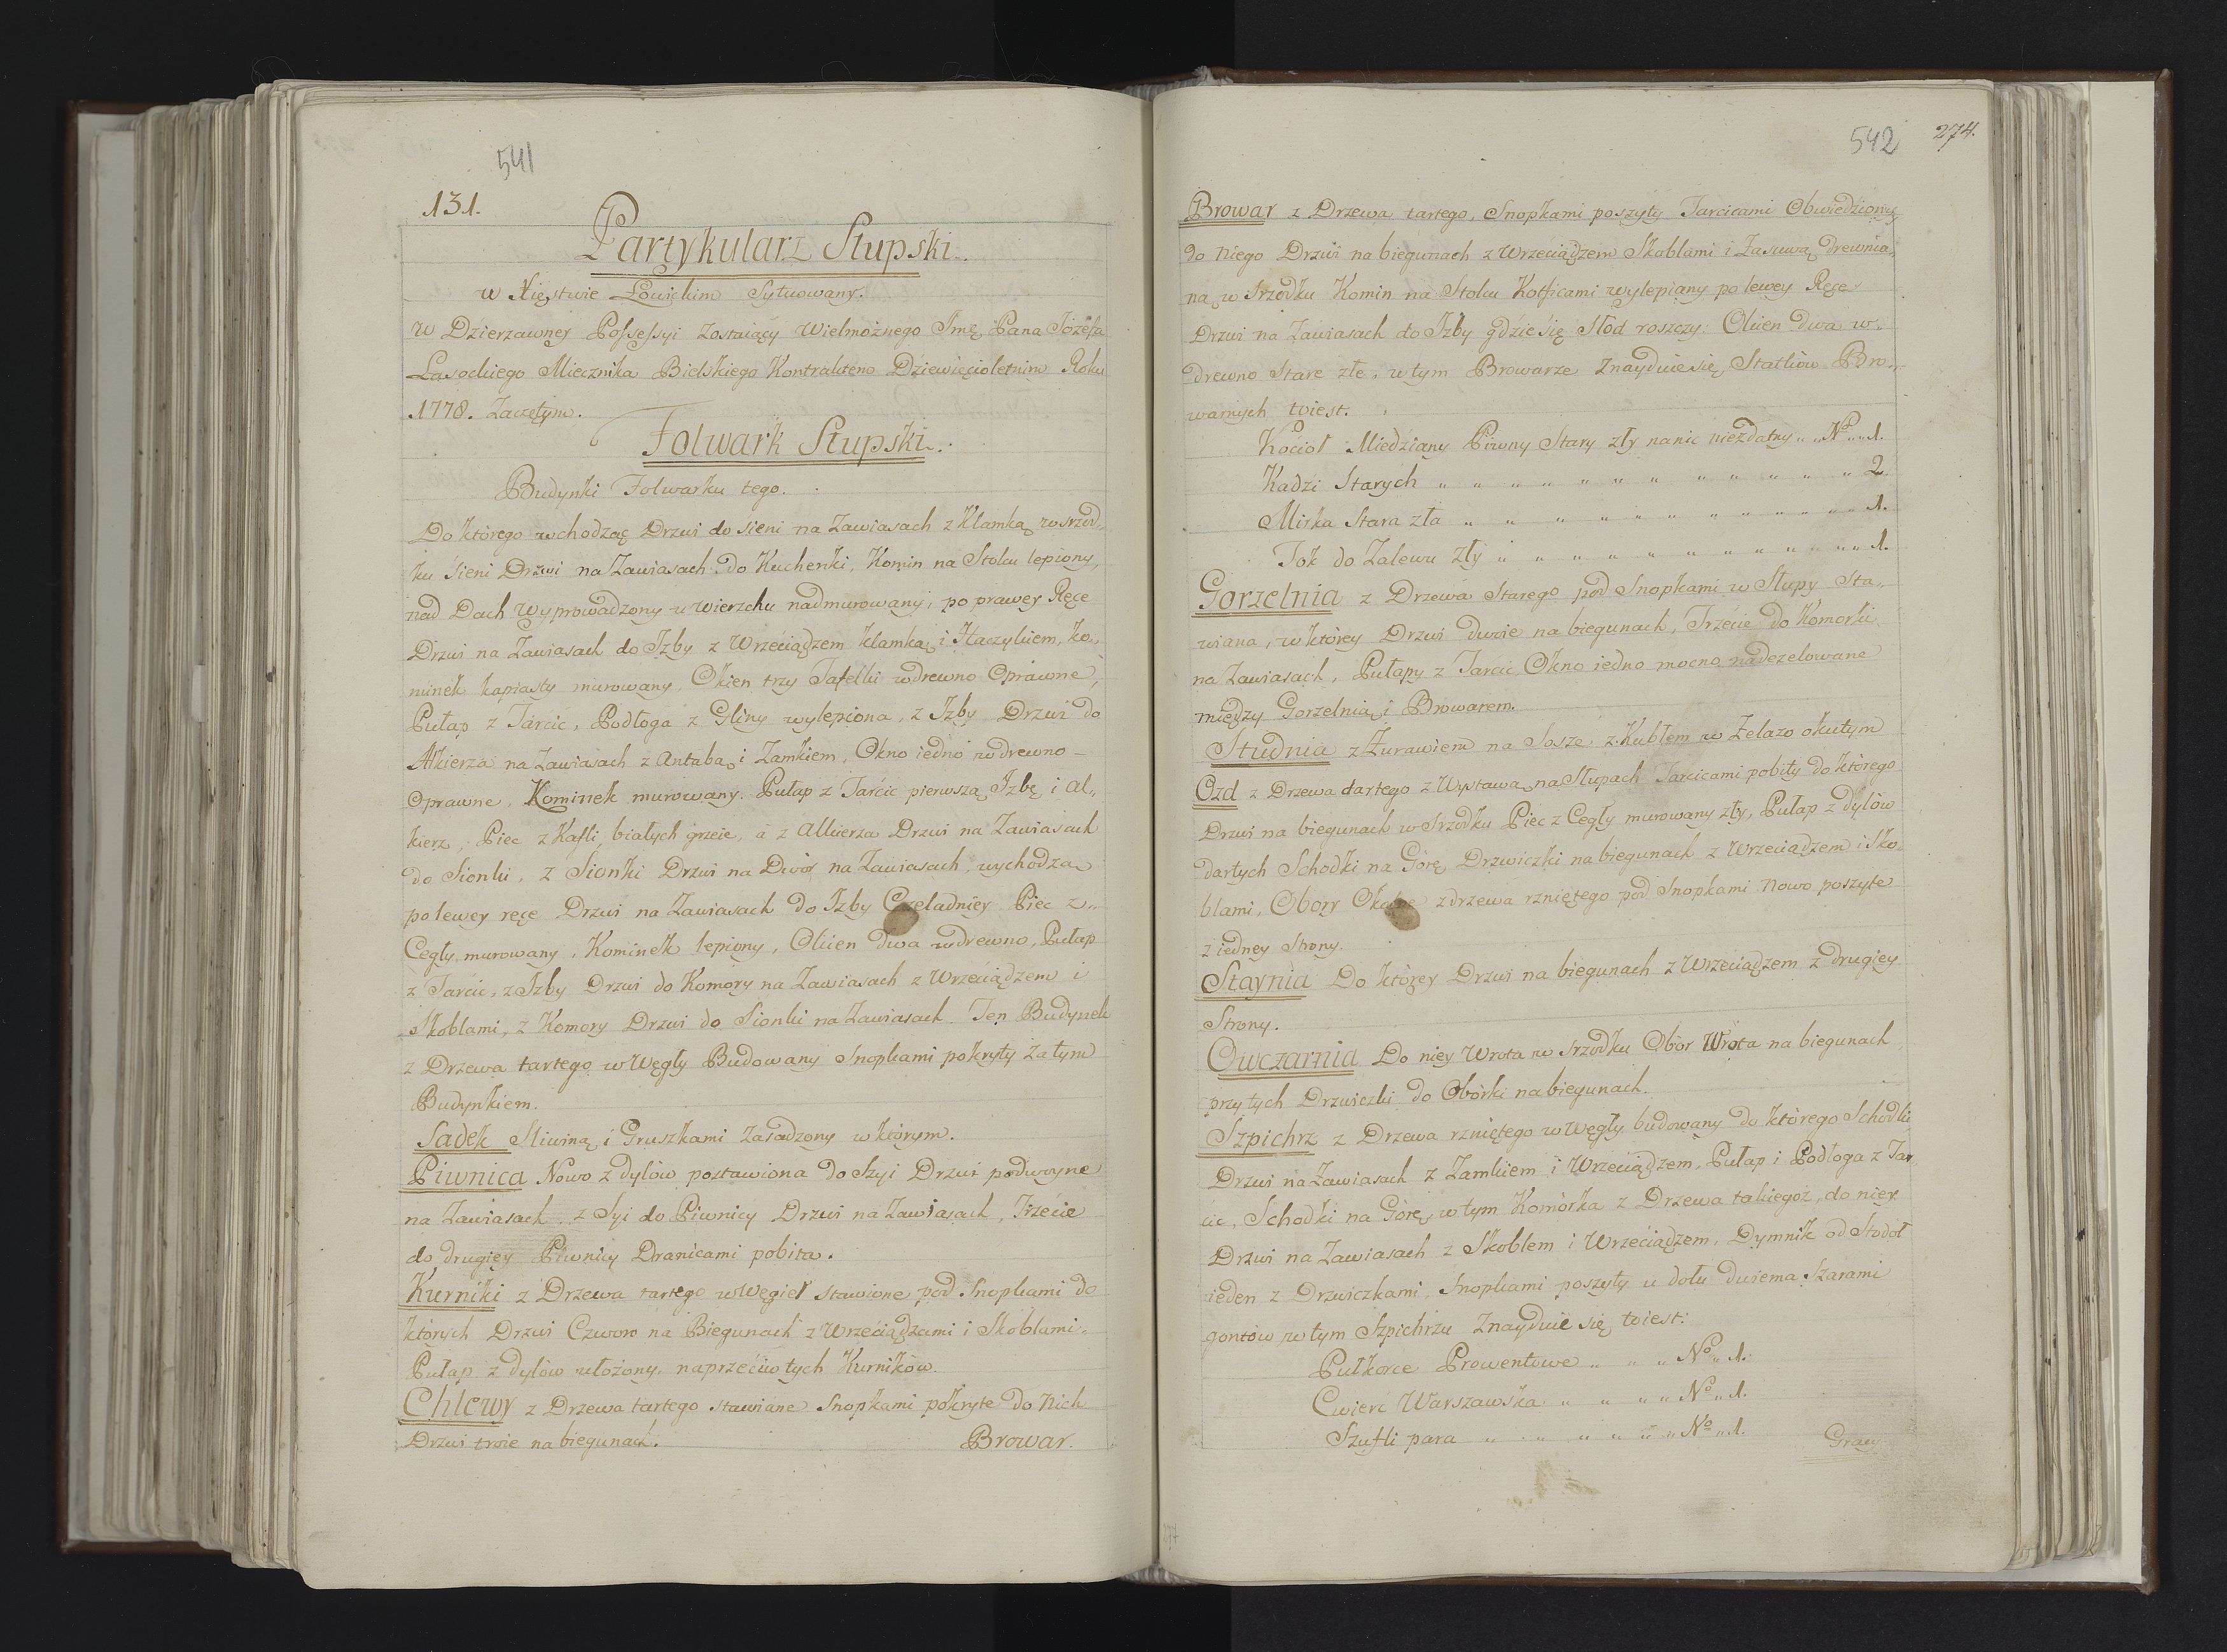 541
131.
Partykularz Słupski.
w Xięstwie Łowickim Sytuowany.
w Dzierzawney Possessyi zostaiący Wielmożnego Jmę Pana Józefa
Lasockiego Miecznika Bielskiego Kontraktem Dziewięcioletnim Roku
1778. Zaczętym.
Folwark Słupski.
Budynki Folwarku tego.
Do którego wchodząc Drzwi do sieni na Zawiasach z Klamką w srzod„
ku sieni Drzwi na Zawiasach do Kuchenki, Komin na Stolcu lepiony,
nad Dach wyprowadzony u wierzchu nadmurowany, po prawey Ręce
Drzwi na Zawiasach do Izby z Wrzeciądzem klamką i Haczykiem, ko„
minek kapiasty murowany, Okien trzy Tafelki w drewno Oprawne,
Pułap z Tarcic, Podłoga z Gliny wylepiona, z Izby Drzwi do
Alkierza na Zawiasach z Antabą i Zamkiem, Okno iedno w drewno
Oprawne, Kominek murowany. Pułap z Tarcic pierwszą Izbę i Al„
kierz, Piec z Kafli białych grzeie, a z Alkierza Drzwi na Zawiasach
do Sionki, z Sionki Drzwi na Dwór na Zawiasach, wychodzą
po lewey ręce Drzwi na Zawiasach do Izby Czeladniey Piec z„
Cegły murowany, Kominek lepiony, Okien dwa w drewno, Pułap
z Tarcic, z Izby Drzwi do Komory na Zawiasach z Wrzeciądzem i
Skoblami, z Komory Drzwi do Sionki na Zawiasach Ten Budynek
z Drzewa tartego w Węgły Budowany Snopkami pokryty za tym
Budynkiem.
Sadek Śliwiną i Gruszkami zasadzony w którym.
Piwnica Nowo z dylów postawiona do Szyi Drzwi podwoyne
na Zawiasach, z Syi do Piwnicy Drzwi na Zawiasach, Trzecie
do drugiey Piwnicy Dranicami pobita.
Kurniki z Drzewa tartego w Węgieł stawione pod Snopkami do
których Drzwi Czworo na Biegunach z Wrzeciądzami i Skoblami.
Pułap z dylów ułożony. naprzeciw tych Kurników.
Chlewy z Drzewa tartego stawiane Snopkami pokryte do nich
Drzwi troie na biegunach.
Browar.
542
274.
Browar z Drzewa tartego, Snopkami poszyty Tarcicami Obwiedziony
do niego Drzwi na biegunach z Wrzeciądzem Skoblami i Zasuwą drewnia„
ną, w Srzodku Komin na Stolcu Kotficami wylepiany po lewey Ręce
Drzwi na Zawiasach do Izby gdzie się Słod roszczy: Okien dwa w„
drewno Stare złe, w tym Browarze Znayduie się Statków Bro„
warnych toiest.
Kocioł Miedziany Piwny Stary zły na nic niezdatny „ „ No „ „ 1.
Kadzi Starych „ „ „ „ „ „ „ „ „ „ „ „ „ 2.
Miska Stara zła „ „ „ „ „ „ „ „ „ „ „ „ „ 1.
Tok do Zalewu zły „ „ „ „ „ „ „ „ „ „ „ „ „ 1.
Gorzelnia z Drzewa Starego pod Snopkami w Słupy Sta„
wiana, w którey Drzwi dwoie na biegunach, Trzecie do Komorki
na Zawiasach, Pułapy z Tarcic Okno iedno mocno nadezelowane
między Gorzelnią i Browarem.
Studnia z Żurawiem na Sosze z Kubłem w Żelazo okutym
Ozd z Drzewa dartego z Wystawą na Słupach Tarcicami pobity do którego
Drzwi na biegunach w Srzodku Piec z Cegły murowany zły, Pułap z dylów
dartych Schodki na Górę, Drzwiczki na biegunach z Wrzeciądzem i Sko„
blami, Obory z drzewa rzniętego pod Snopkami Nowo poszyte
z iedney Strony.
Staynia Do którey Drzwi na biegunach z Wrzeciądzem z drugiey
Strony.
Owczarnia Do niey Wrota w Srzodku Obór Wrota na biegunach
przy tych Drzwiczki do Obórki na biegunach.
Szpichrz z Drzewa rzniętego w Węgły budowany do którego Schodki
Drzwi na Zawiasach z Zamkiem i Wrzeciądzem, Pułap i Podłoga z Tar„
cic, Schodki na Górę, w tym Komórka z Drzewa takiegoż, do niey
Drzwi na Zawiasach z Skoblem i Wrzeciądzem, Dymnik od Stodoł
ieden z Drzwiczkami Snopkami poszyty u dołu dwiema Szarami
gontów w tym Szpichrzu Znayduie się toiest:
Pułkorce Prowentowe „ „ „ No „ 1.
Cwierć Warszawska „ „ „ „ No „ 1.
Szufli para „ „ „ „ „ „ No „ 1.